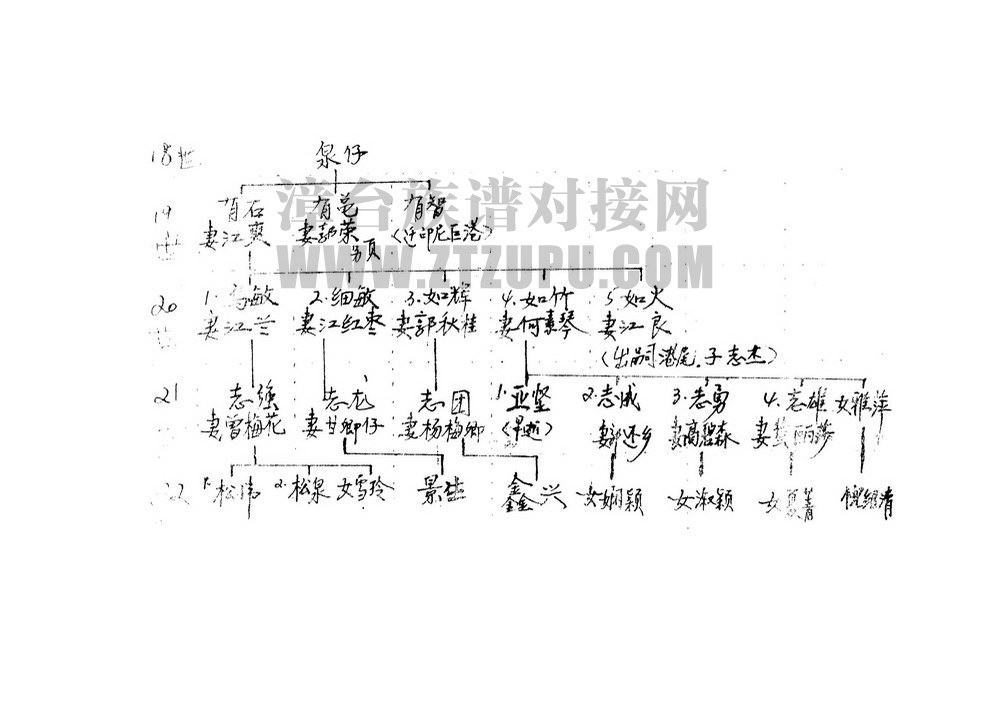 18世 泉仔
19世 有石 有黾 有智
妻江爽 妻郭荣 (迁印尼巨港)
另页
漳台族谱对接网
WWW.ZTZUPU.COM
20 1.乌敏 2.细敏 3.如辉 4.如竹 5.如火
妻江兰 妻江红枣 妻郭秋桂 妻何素琴 妻江良
(出嗣港尾.子志杰)
21 志强 志尨 志团 1.亚坚 2.志成 3.志勇 4.志雄 女雅萍
妻曾梅花 妻甘卿仔 妻杨梅卿 (早逝) 妻郭还乡 妻高碧森 妻 丽莎
22 1.松伟 2.松泉 女雪玲 景 鑫兴 女娴颖 女淑颖 女夏菁